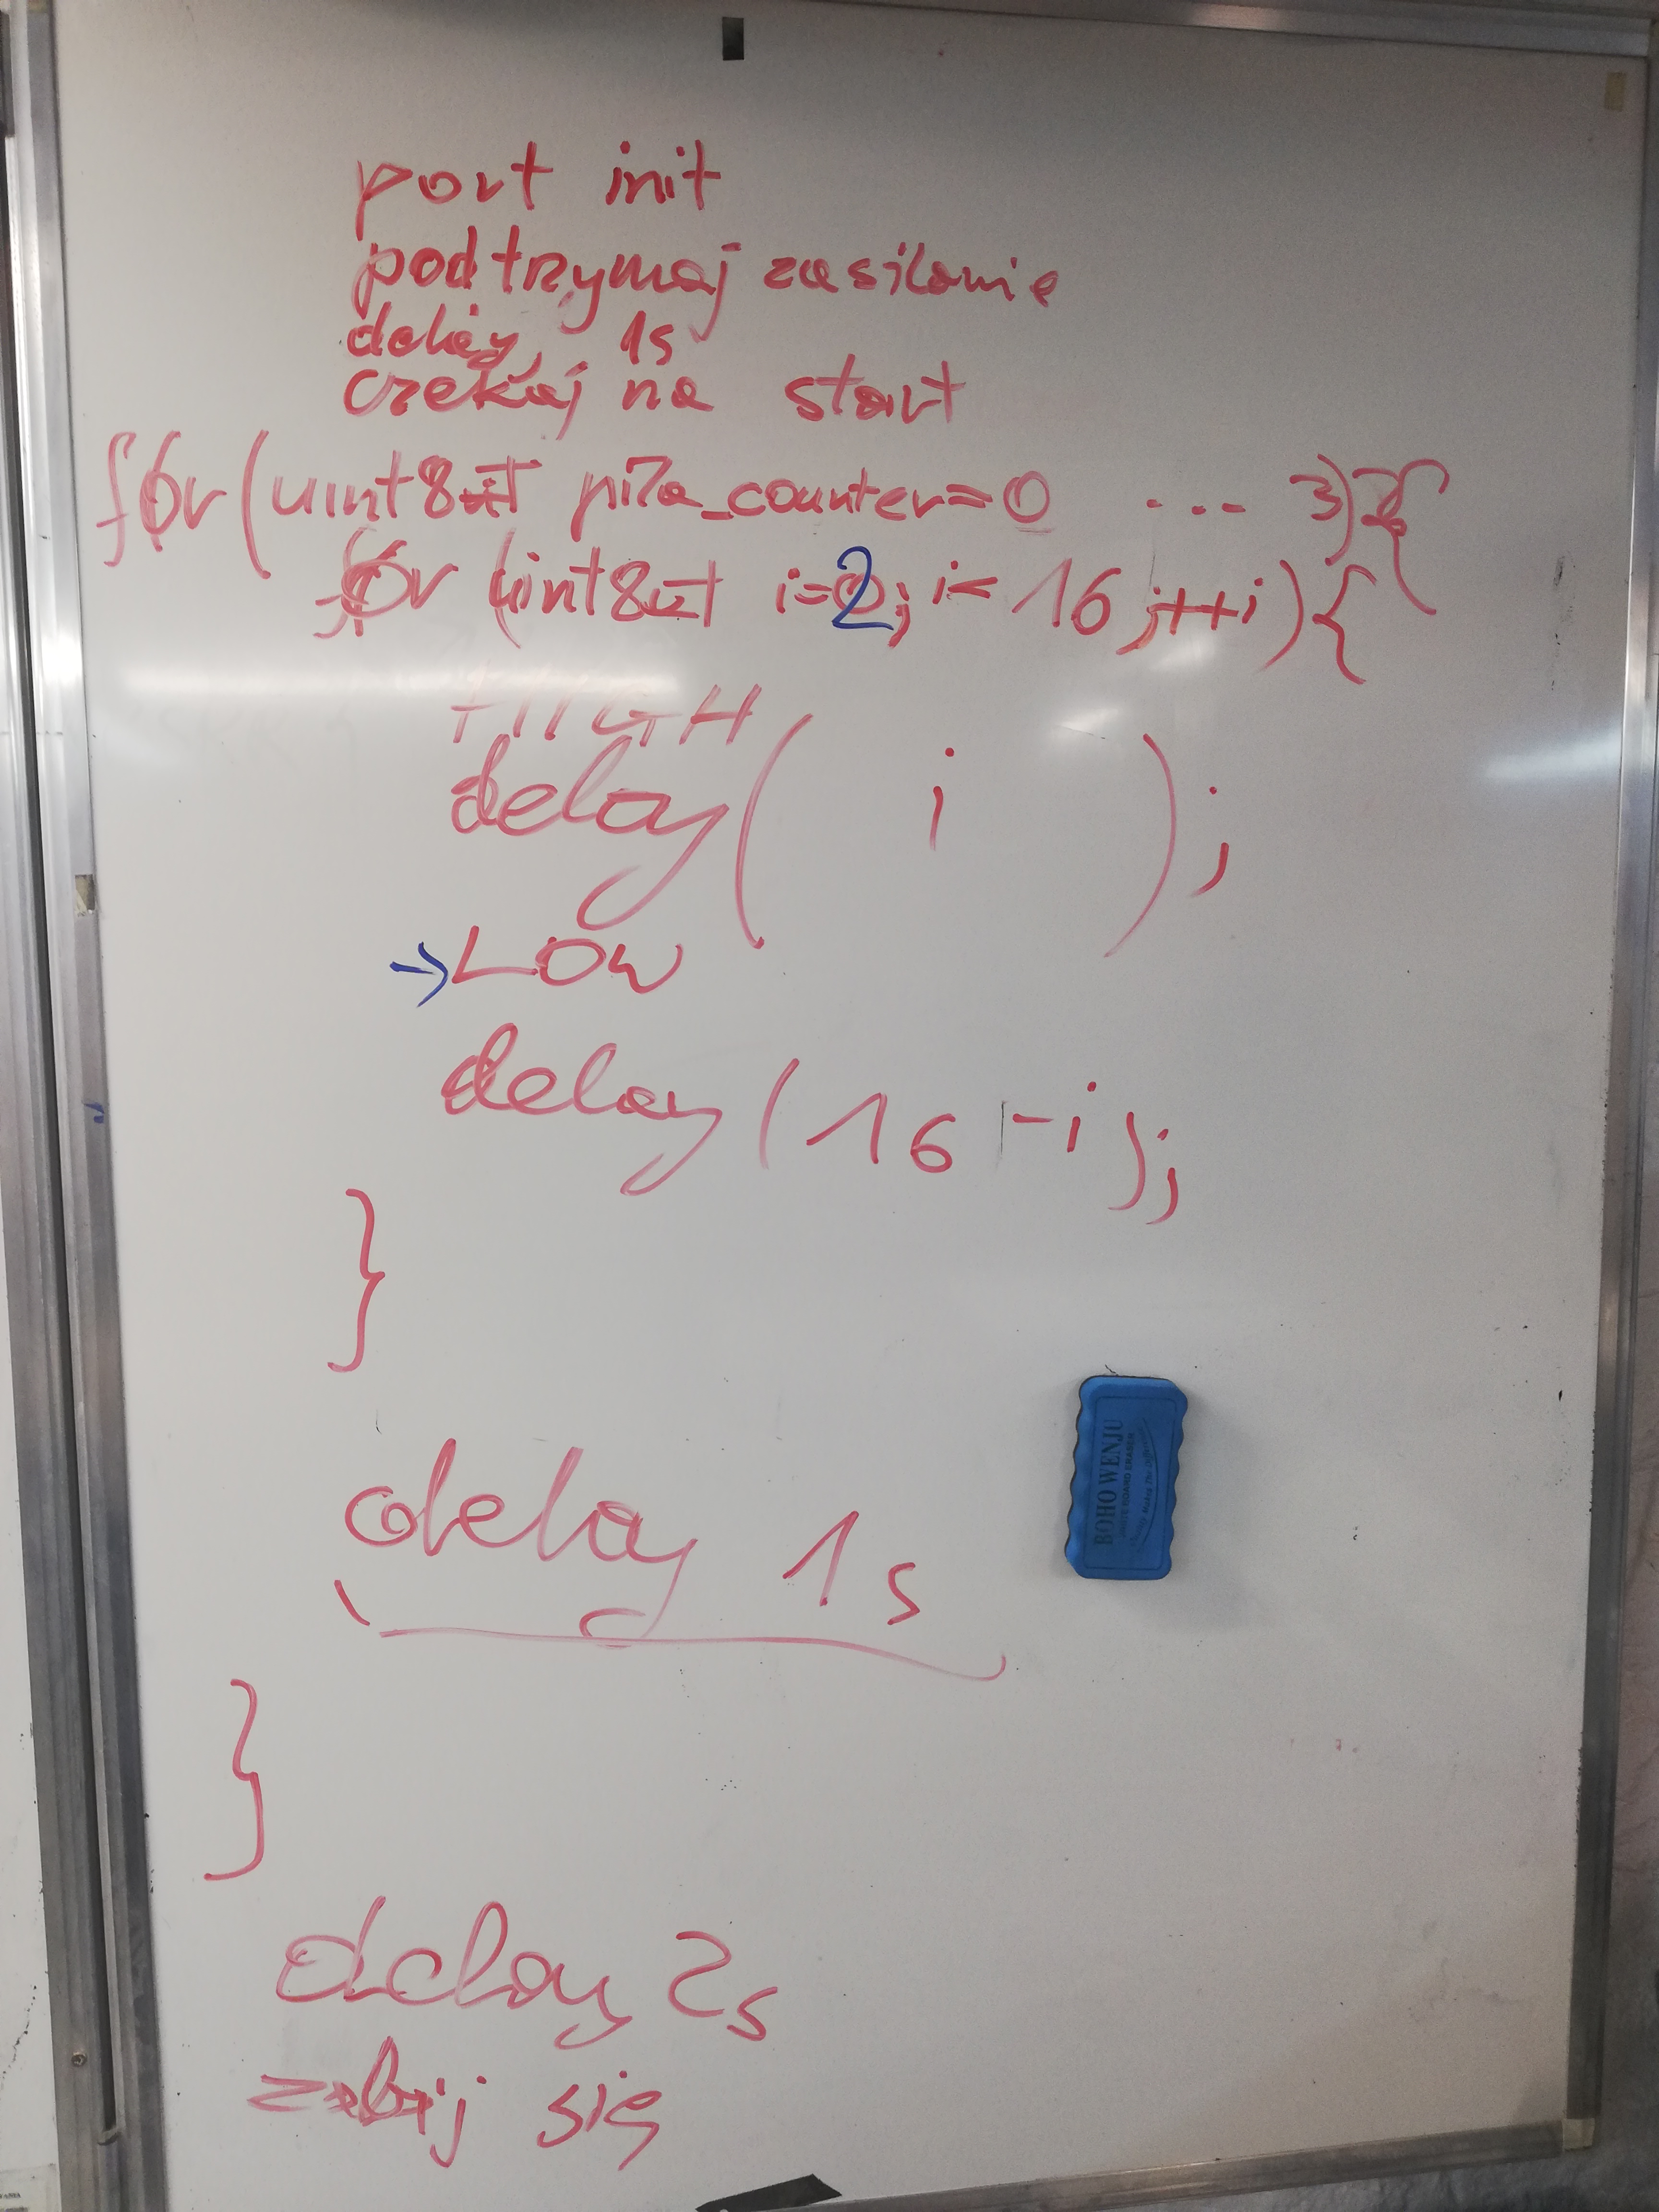 port init
podtrzymaj zasilanie
delay 1s
czekaj na start
for (uint8_t piła_counter=0 ... 3){
for (uint8_t i=2; i< 16; ++i){
HIGH
delay( i );
→LOW
delay(16-i);
}
delay 1s
}
delay 2s
zabij się
BOHO WENJU
WHITE BOARD ERASER